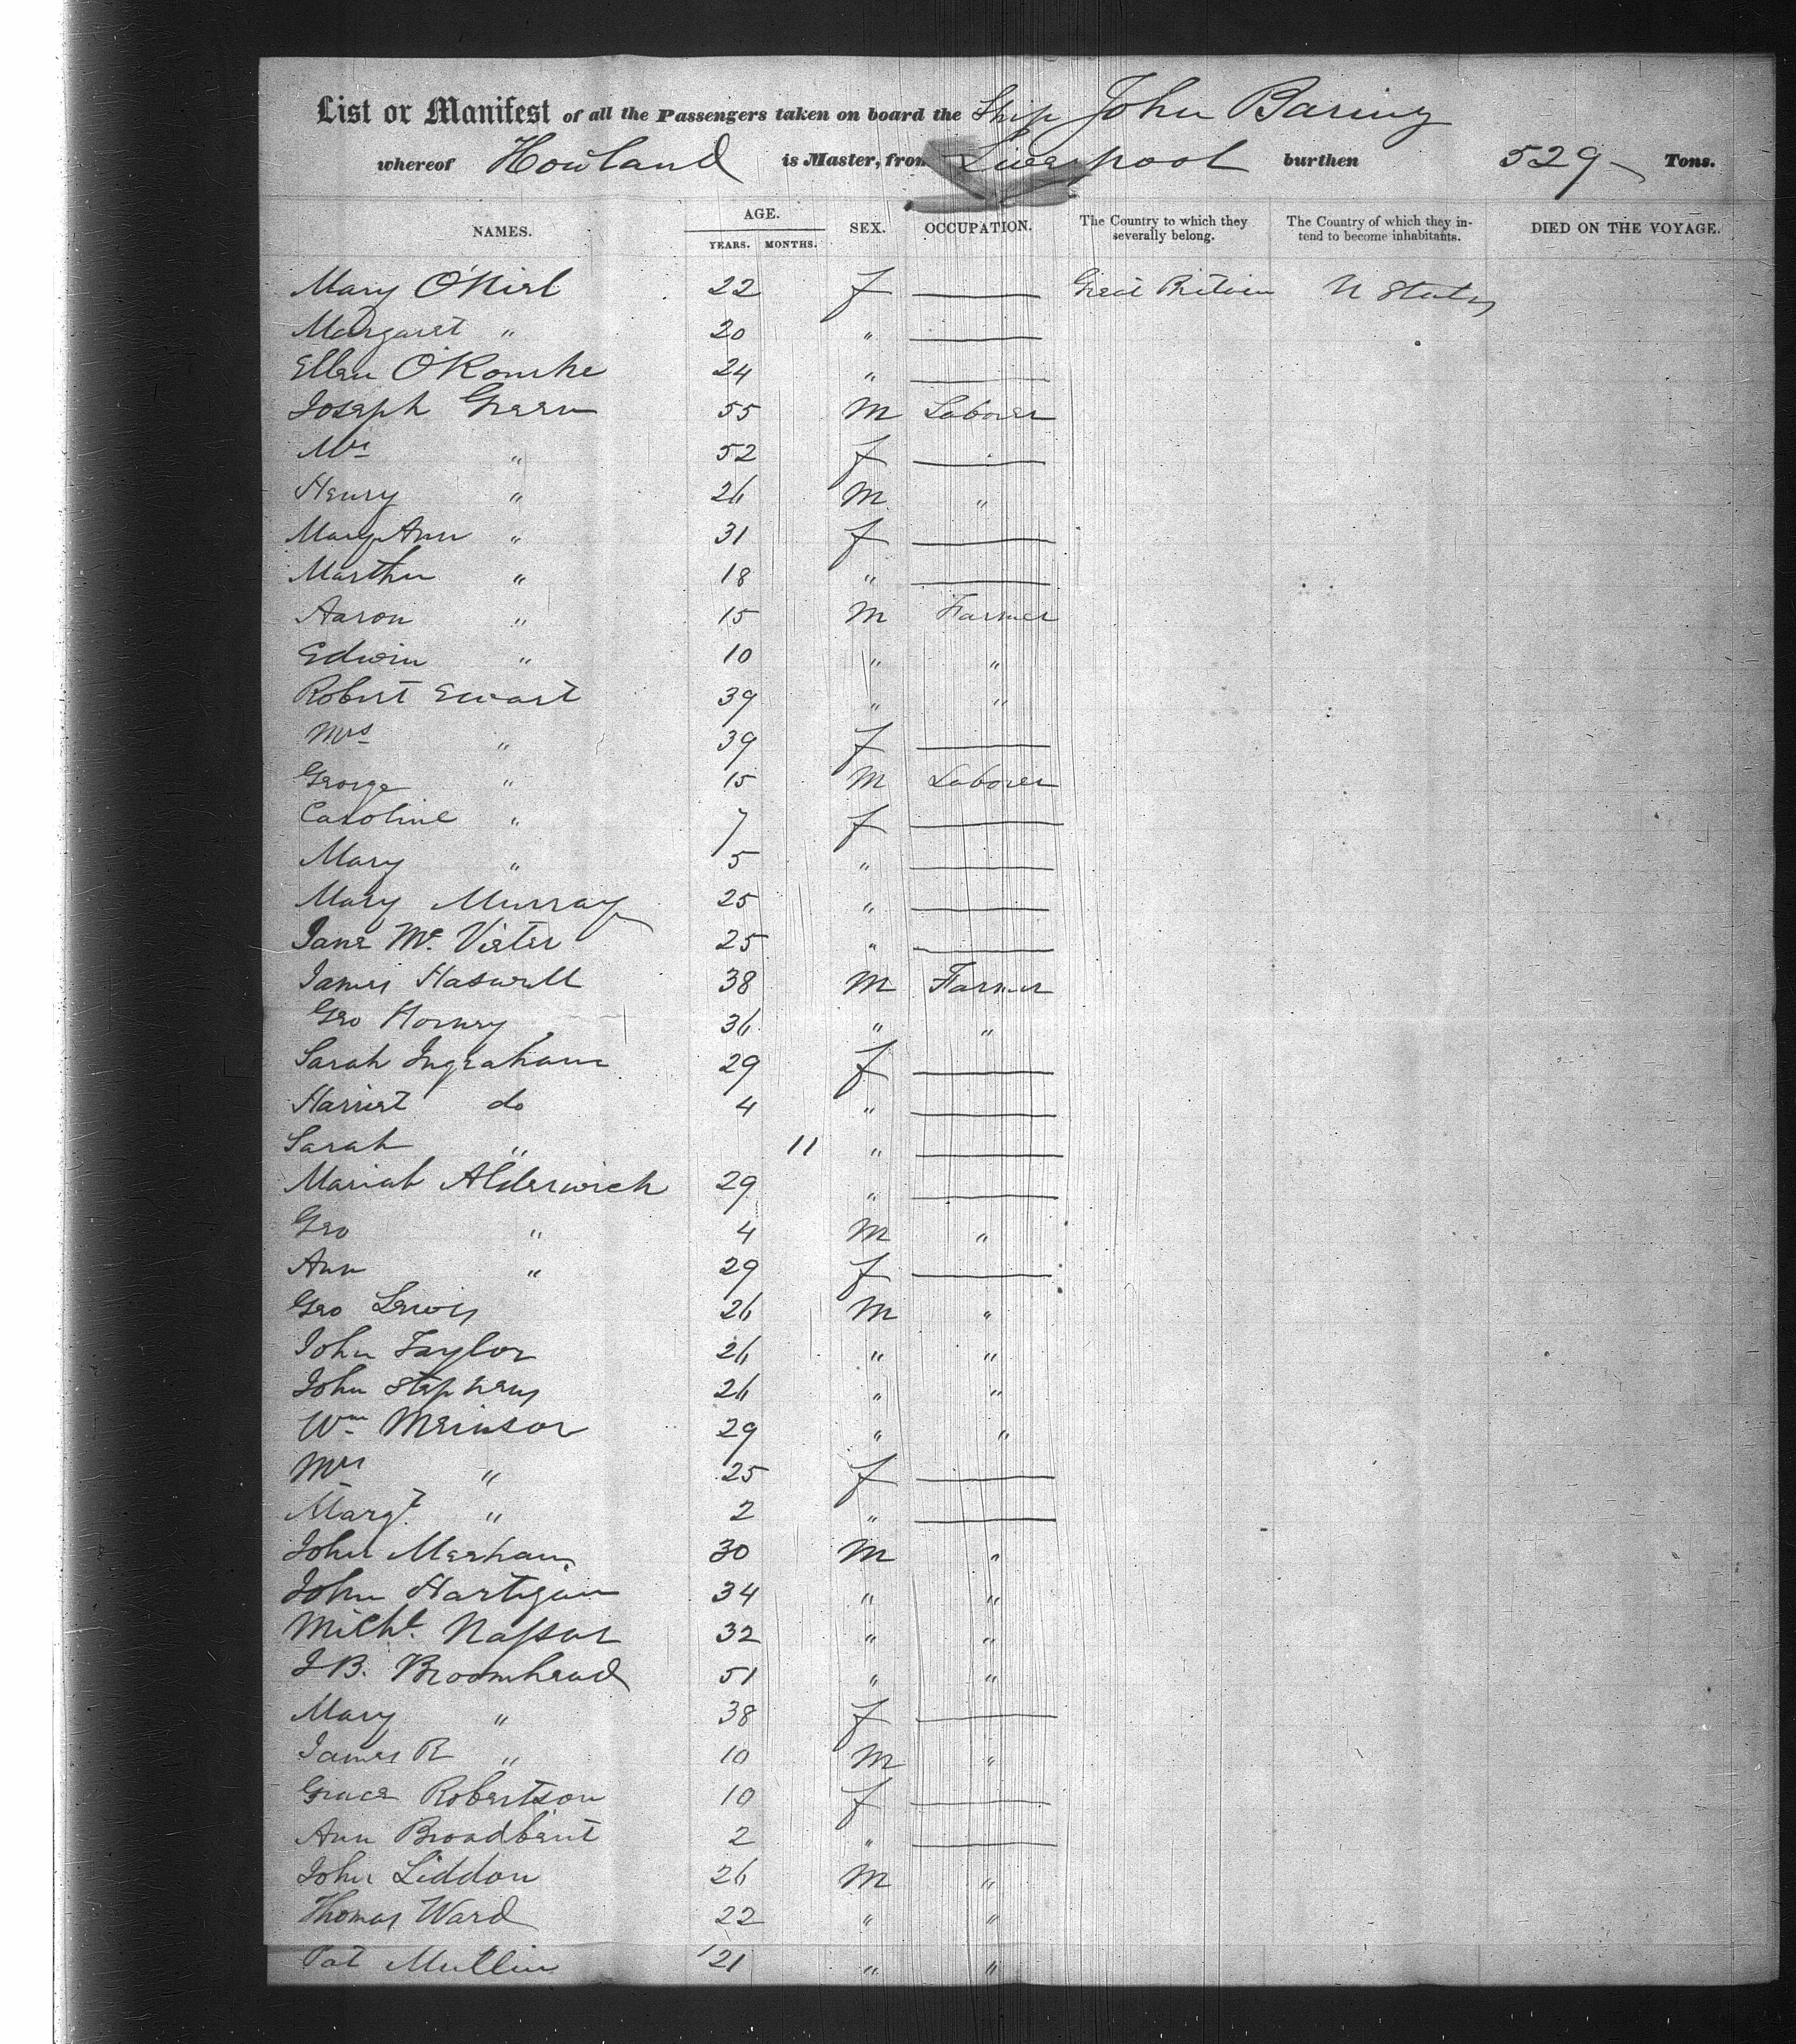 List or Manifest of all the Passengers taken on board the Ship John Baring
whereof Howland is Master, from Liverpool burthen 529 Tons.
NAMES. AGE. YEARS. MONTHS. SEX. OCCUPATION. The Country to which they severally belong. The Country of which they intend to become inhabitants. DIED ON THE VOYAGE.
Mary O'Niel 22 f — Great Britain U States
Margaret " 20 " —
Ellen O'Rourke 24 " —
Joseph Green 55 M Laborer
Mrs " 52 f —
Henry " 26 M "
Mary Ann " 31 f —
Martha " 18 " —
Aaron " 15 M Farmer
Edwin " 10 " "
Robert Ewart 39 " "
Mrs " 39 f —
George " 15 M Laborer
Caroline " 7 f —
Mary " 5 " —
Mary Murray 25 " —
Jane Mc 25 " —
James Haswell 38 M Farmer
Geo 36 " "
Sarah Ingraham 29 f —
Harriet do 4 " —
Sarah " 11 " —
Mariah Alderwick 29 " —
Geo " 4 M "
Ann " 29 f —
Geo Lewis 26 M "
John Taylor 26 " "
John Stephens 26 " "
Wm 29 " "
Mrs " 25 f —
Margt " 2 " —
John 30 M "
John Hartigan 34 " "
Michl. 32 " "
J B. Broomhead 51 " "
Mary " 38 f —
James R " 10 M "
Grace Robertson 10 f —
Ann Broadbent 2 " —
John Liddon 26 M "
Thomas Ward 22 " "
Pat Mullin 21 " "